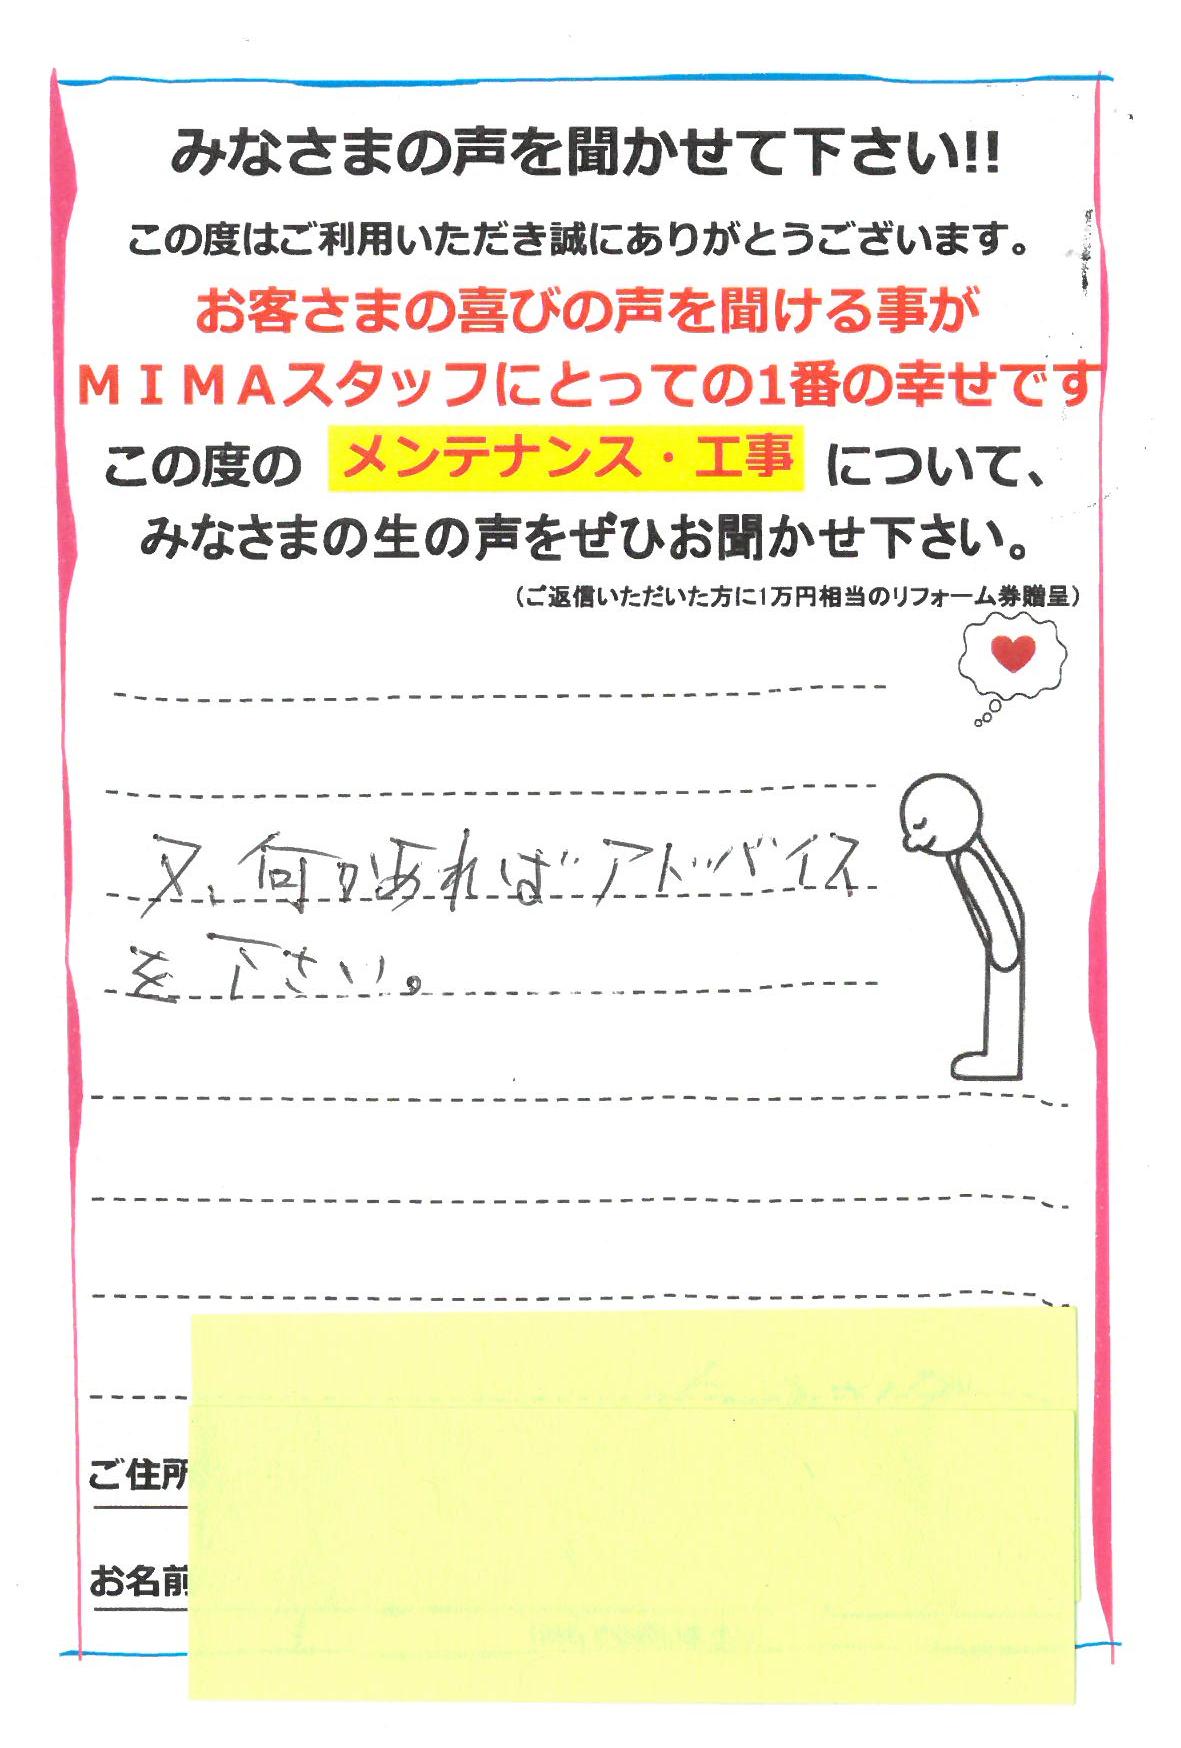 みなさまの声を聞かせて下さい!!
この度はご利用いただき誠にありがとうございます。
お客さまの喜びの声を聞ける事が
ＭＩＭＡスタッフにとっての1番の幸せです
この度の メンテナンス・工事 について、
みなさまの生の声をぜひお聞かせ下さい。
（ご返信いただいた方に1万円相当のリフォーム券贈呈）
又、何かあればアドバイス
を下さい。
ご住所
お名前